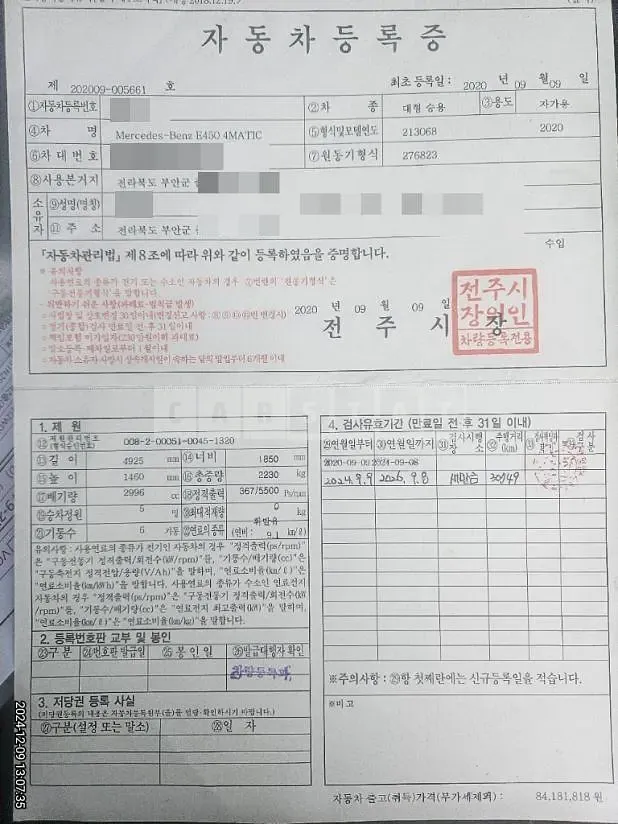 자동차등록증
제 202009-005661 호
최초 등록일 : 2020 년 09 월 09 일
①자동차등록번호 ②차 종 대형 승용 ③용도 자가용
④차 명 Mercedes-Benz E450 4MATIC ⑤형식및모델연도 213068 2020
⑥차대번호 ⑦원동기형식 276823
⑧사용본거지 전라북도 부안군
소유자 ⑨성명(명칭)
⑪주 소 전라북도 부안군
수입
「자동차관리법」제8조에 따라 위와 같이 등록하였음을 증명합니다.
※ 유의사항
사용연료의 종류가 전기 또는 수소인 자동차의 경우 ⑦번란의 '원동기형식'은
'구동전동기형식'을 말합니다.
2020 년 09 월 09 일
전 주 시 장
전주시
장원인
차량등록전용
1. 제 원
008-2-00051-0045-1320
⑬길 이 4925 mm ⑭너비 1850 mm
⑮높 이 1460 mm ⑯총중량 2230 kg
⑰배기량 2996 cc ⑱정격출력 367/5500 Ps/rpm
⑲승차정원 5 명 ⑳최대적재량 0 kg
㉑기통수 6 기통 ㉒연료의종류 휘발유 (연비 : 9.1 km/ℓ)
유의사항 : 사용연료의 종류가 전기인 자동차의 경우 "정격출력(ps/rpm)"
은 "구동전동기 정격출력/회전수(kW/rpm)"를, "기통수/배기량(cc)"은
"구동축전지 정격전압/용량(V/Ah)"을 말하며, "연료소비율(km/ℓ)"은
"연료소비율(km/kWh)"을 말합니다. 사용연료의 종류가 수소인 연료전지
자동차의 경우 "정격출력(ps/rpm)"은 "구동전동기 정격출력/회전수(kW/rp
m)"를, "기통수/배기량(cc)"은 "연료전지 최고출력(kW)"을 말하며,
"연료소비율(km/ℓ)"은 "연료소비율(km/kg)"을 말합니다.
2. 등록번호판 교부 및 봉인
㉓구 분 ㉔번호판 발급일 ㉕봉 인 일 ㉖발급대행자 확인
3. 저당권 등록 사실
(저당권등록의 내용은 자동차등록원부(을)를 열람·확인하시기 바랍니다.)
㉗구분(설정 또는 말소) ㉘일 자
4. 검사유효기간 (만료일 전·후 31일 이내)
㉙연월일부터 ㉚연월일까지 ㉛검사시행장소 ㉜주행거리(km)
2020-09-09 2024-09-08
2024.9.9 2026.9.8 30949
※주의사항 : ㉙항 첫째란에는 신규등록일을 적습니다.
※비고
자동차 출고(취득)가격(부가세제외) : 84,181,818 원
2024-12-09 13:07:35